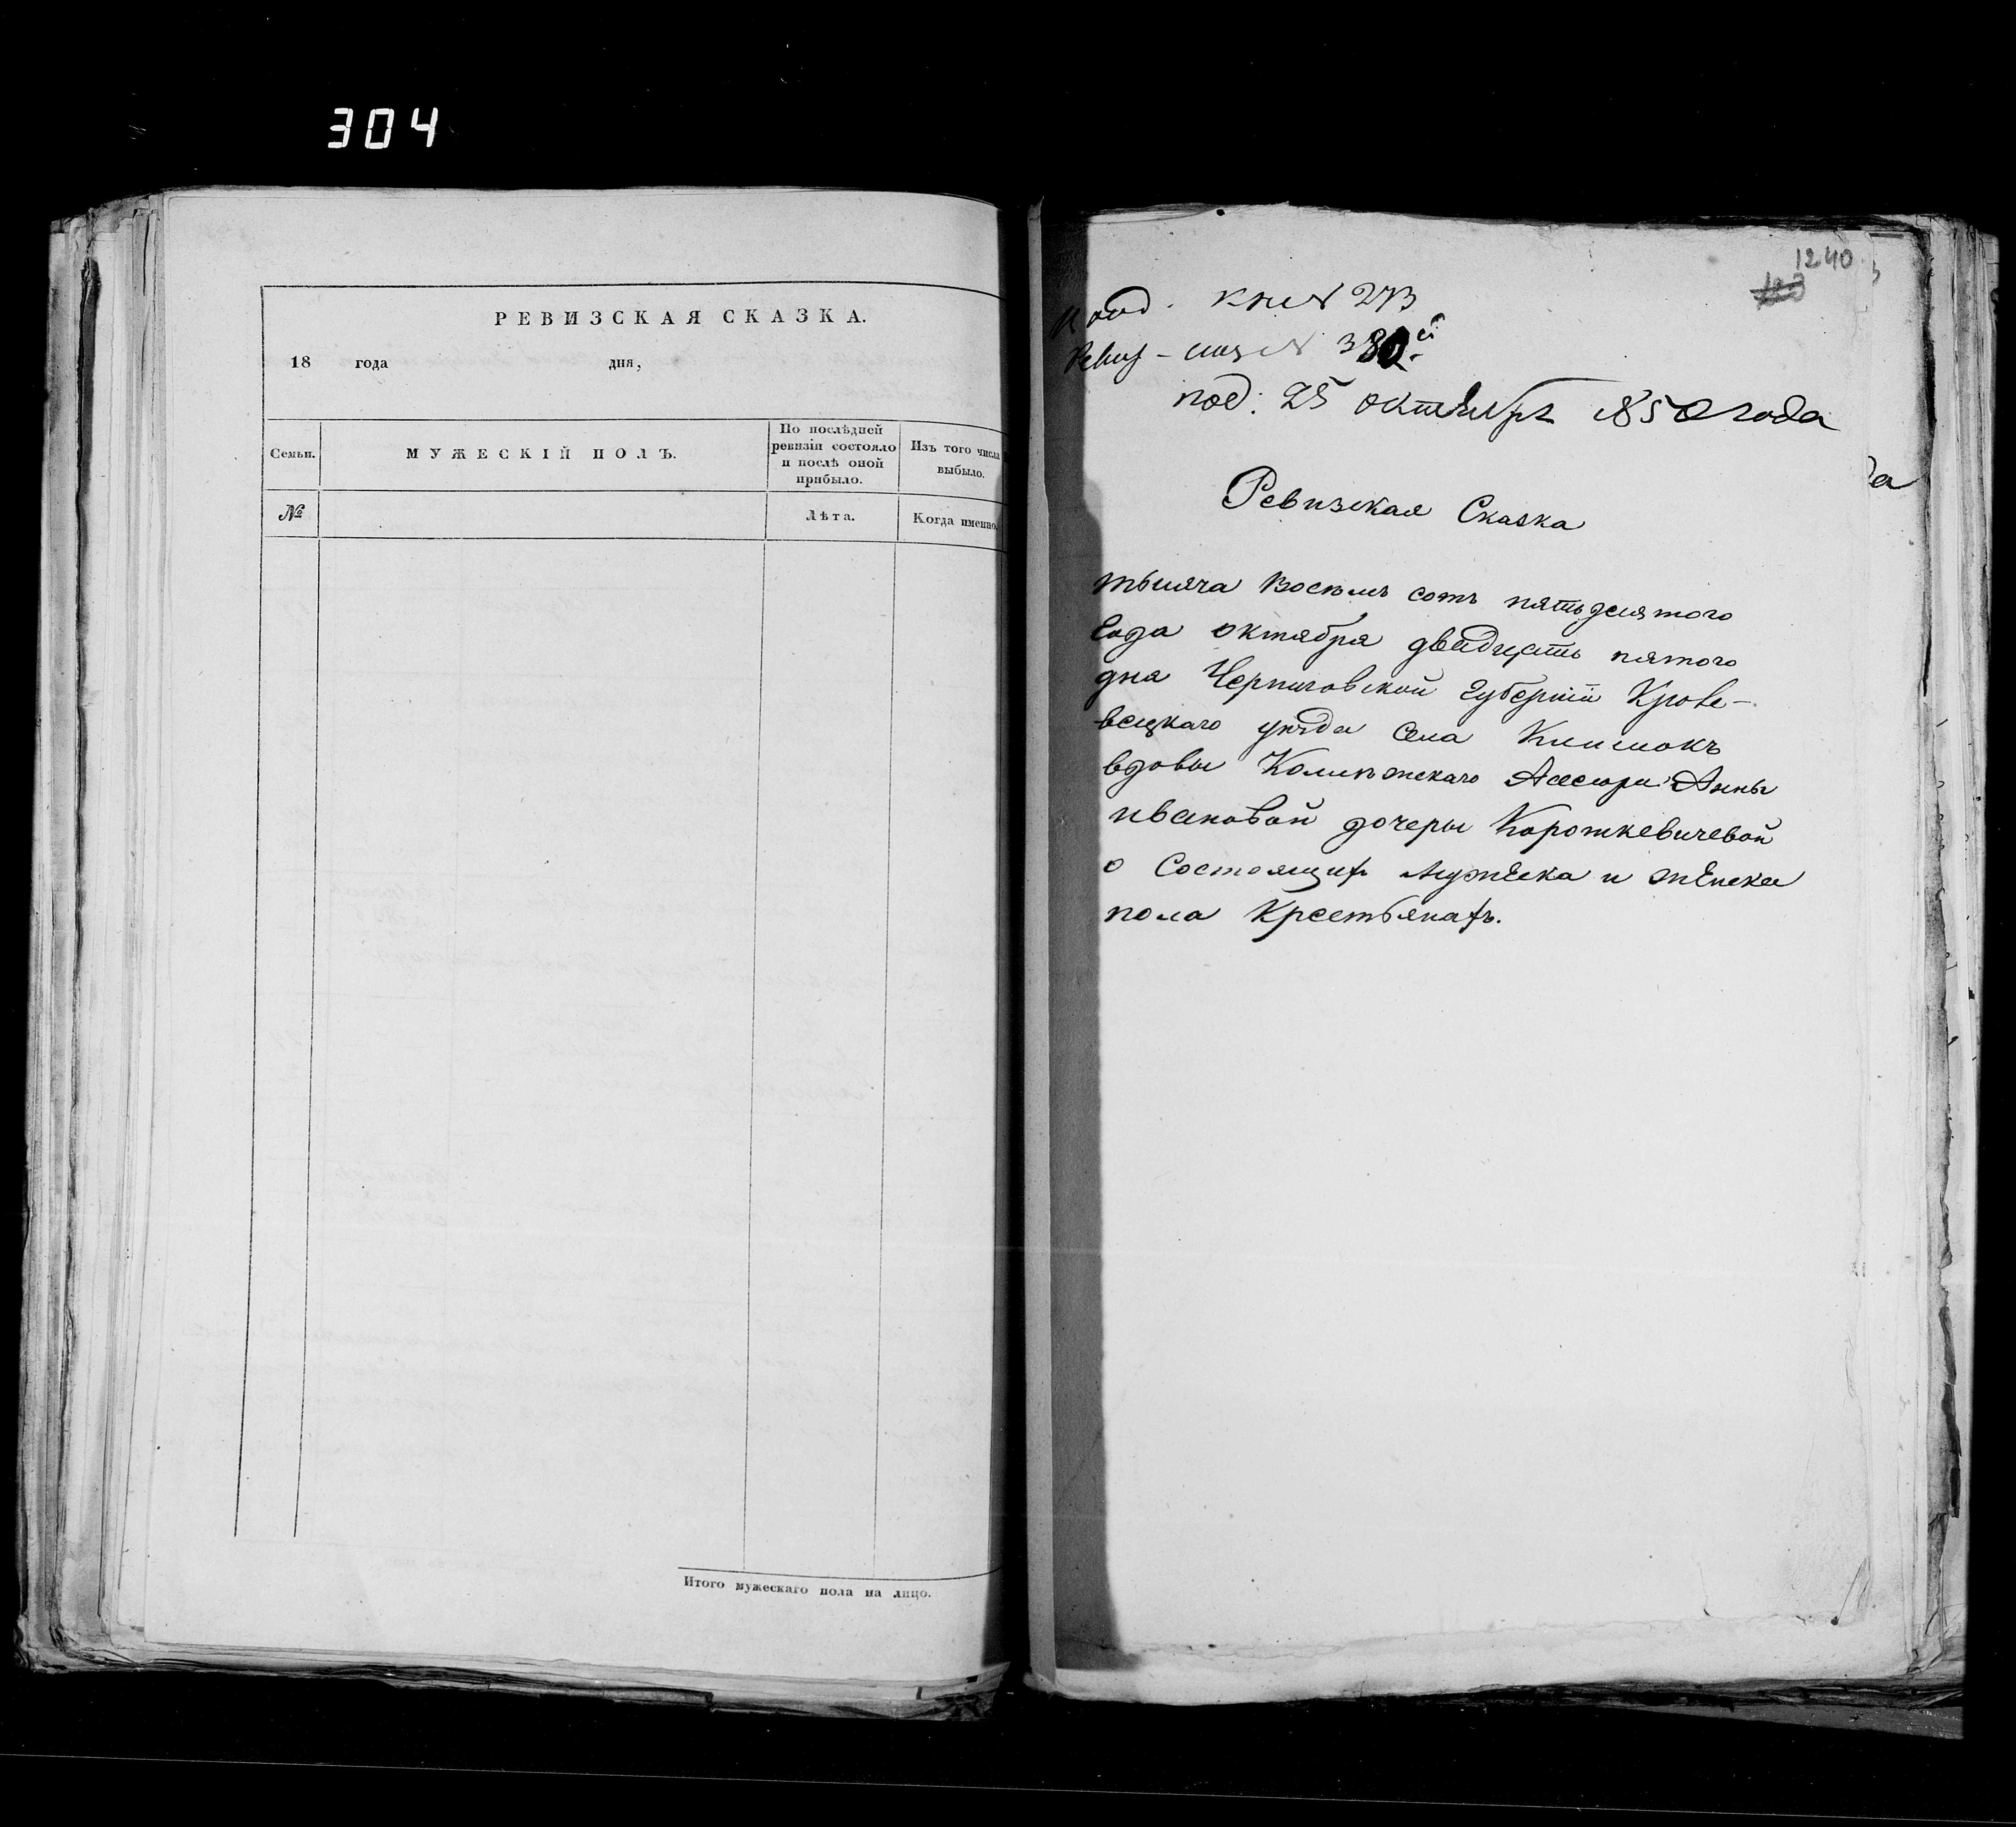 304
РЕВИЗСКАЯ СКАЗКА.
18 года дня,
Семьи.
МУЖЕСКІЙ ПОЛЪ.
По послѣдней
ревизіи состояло
и послѣ оной
прибыло.
Изъ того числа
выбыло.
№
Лѣта.
Когда именно.
Итого мужескаго пола на лицо.
1240
кни № 273
№ 380й
под: 25 октября 1850 года
Ревизская Сказка
тысяча восемь сотъ пятьдесятого
Года октября двадцать пятого
дня Черниговской Губерніи Кроле-
вецкаго уѣзда Села
вдовы Колежскаго Асесора Анны
ивановой дочеры Короткевичевой
о Состоящих мужеска и женска
пола Крестьянахъ.